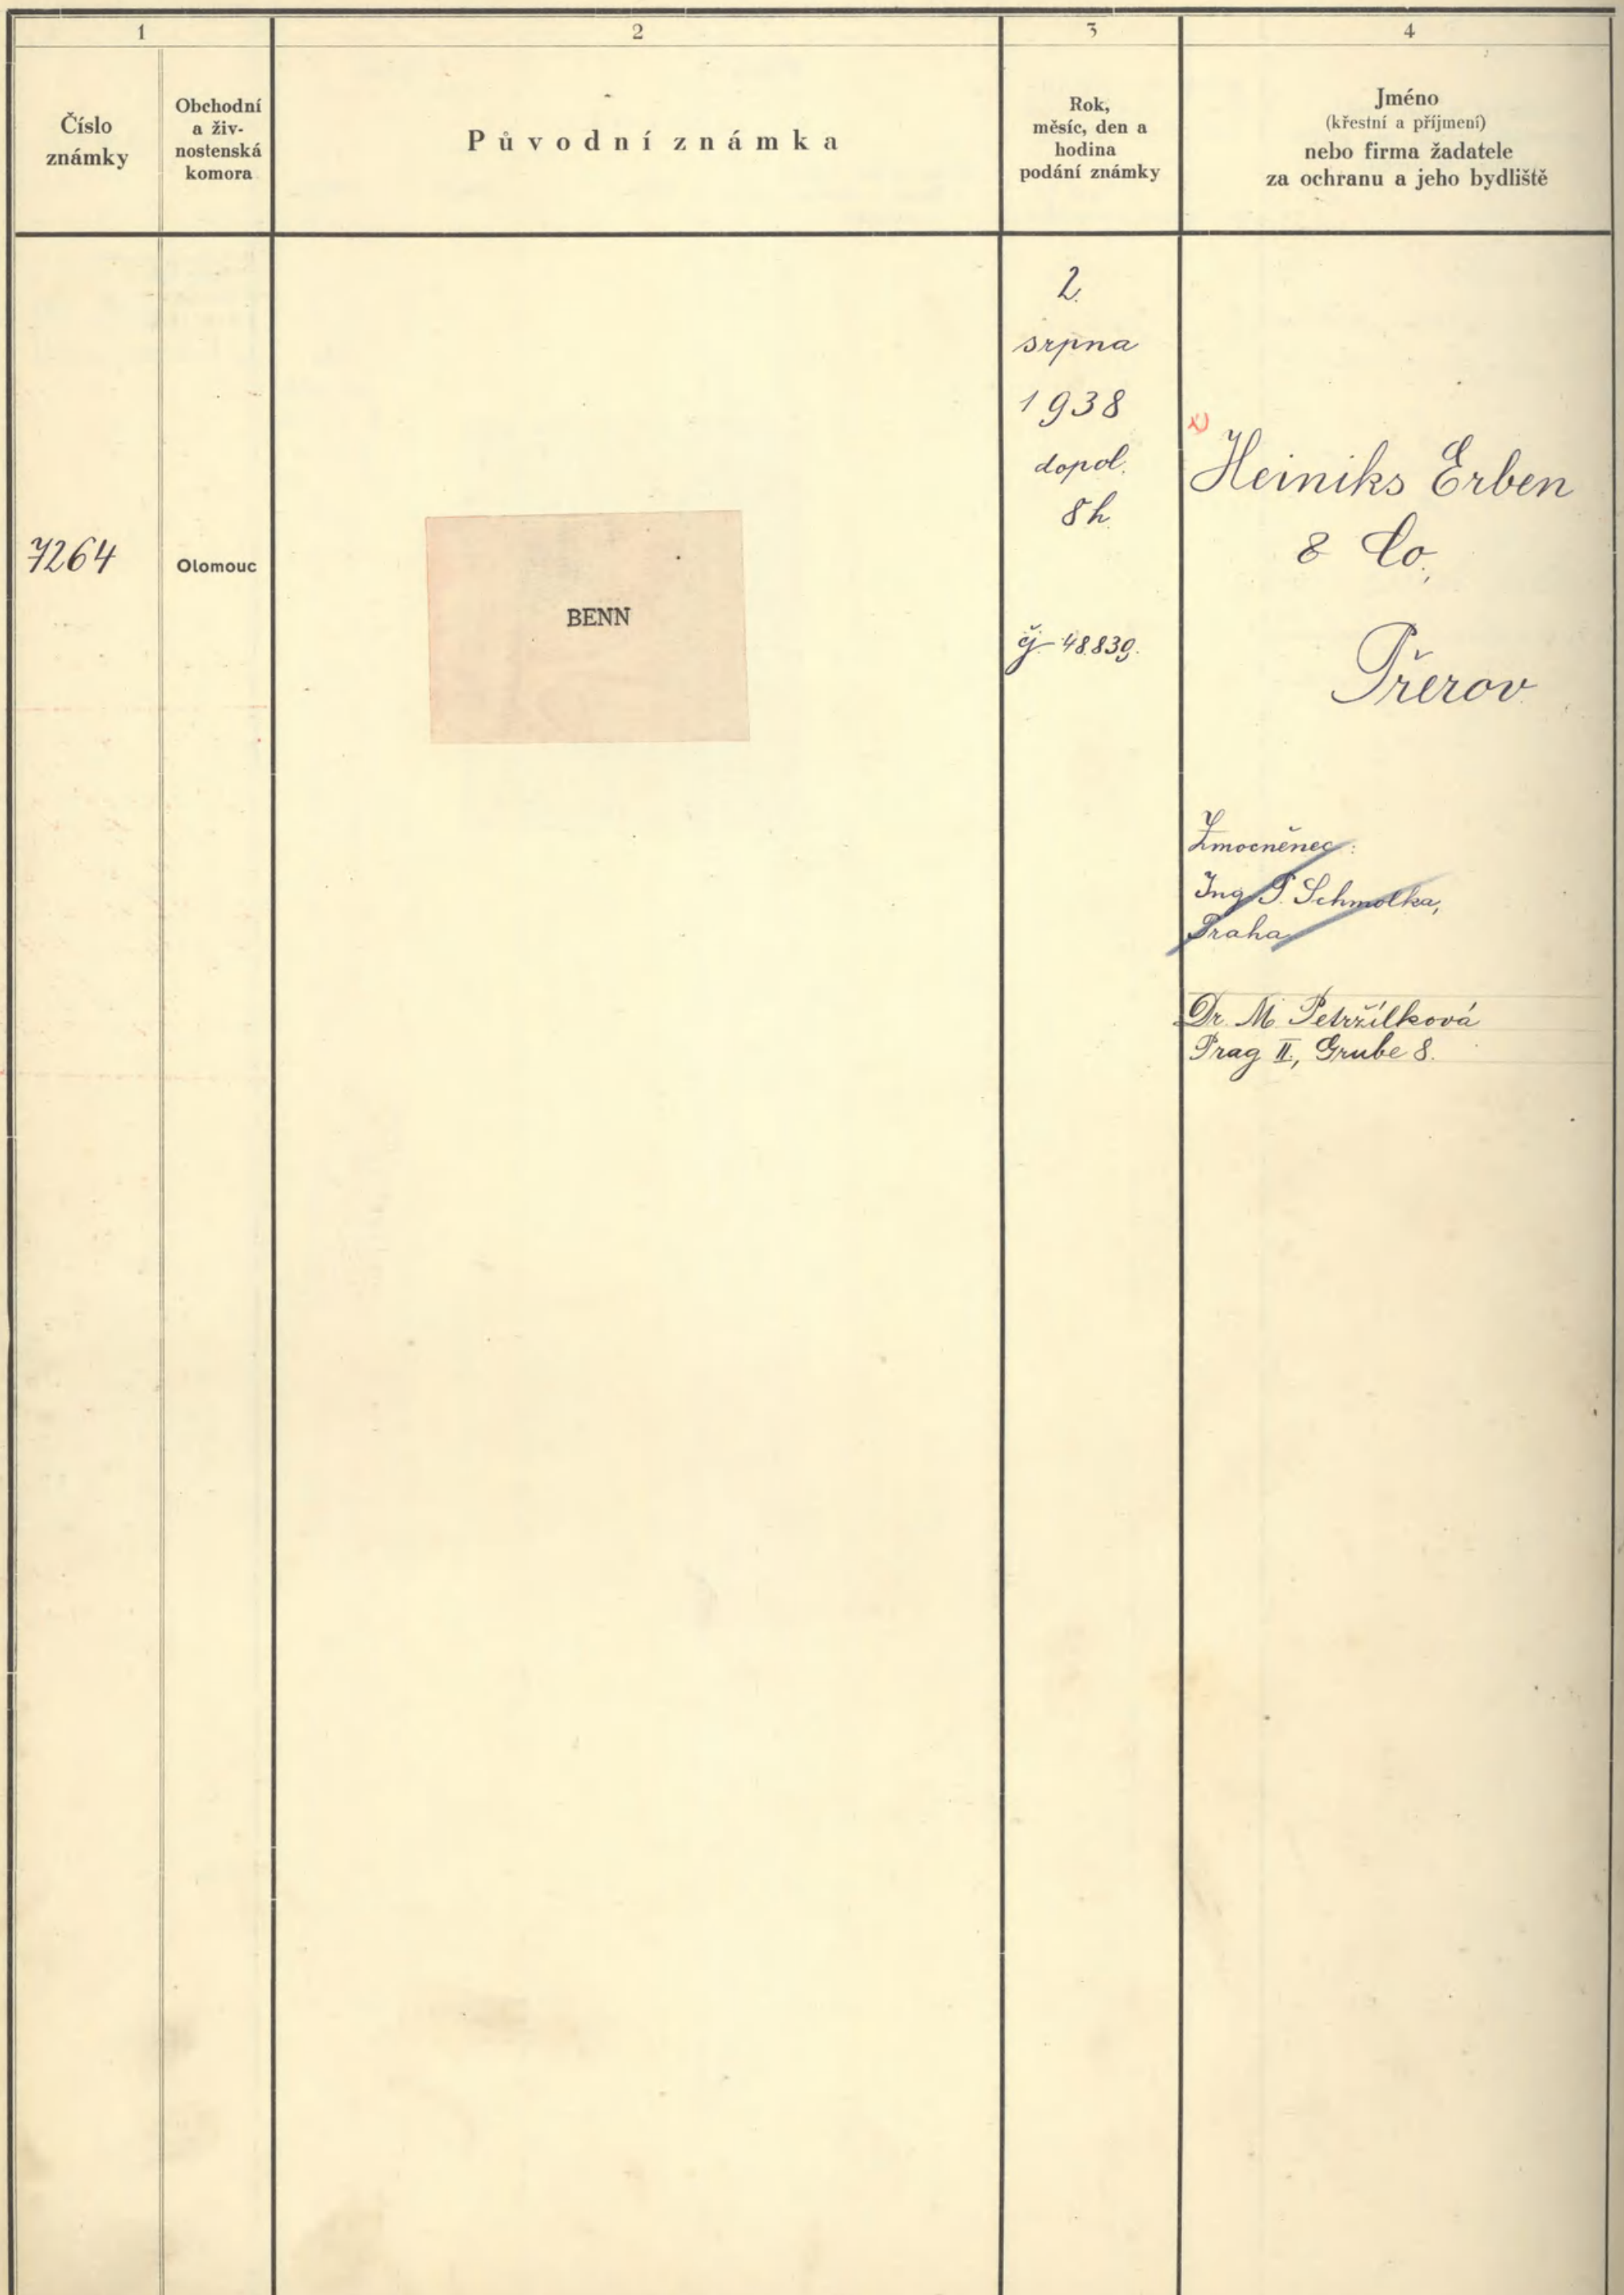 1
2
3
4
Číslo
známky
Obchodní
a živ-
nostenská
komora
Původní známka
Rok,
měsíc, den a
hodina
podání známky
Jméno
(křestní a příjmení)
nebo firma žadatele
za ochranu a jeho bydliště
7264
Olomouc
BENN
2.
srpna
1938
dopol.
8h.
čj. 48.839.
x)
Heiniks Erben
& Co.,
Přerov
Zmocněnec:
Ing. P. Schmolka,
Praha
Dr. M. Petržílková
Prag II., Grube 8.